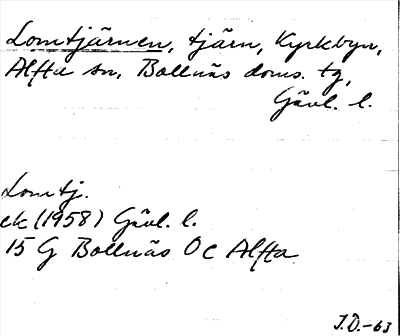 Lomtjärnen, tjärn, Kyrkbyn,
Alfta sn, Bollnäs doms. tg,
Gävl. l.
Lomtj.
ek (1958) Gävl. l.
15 G Bollnäs Öc Alfta
J.D.-63